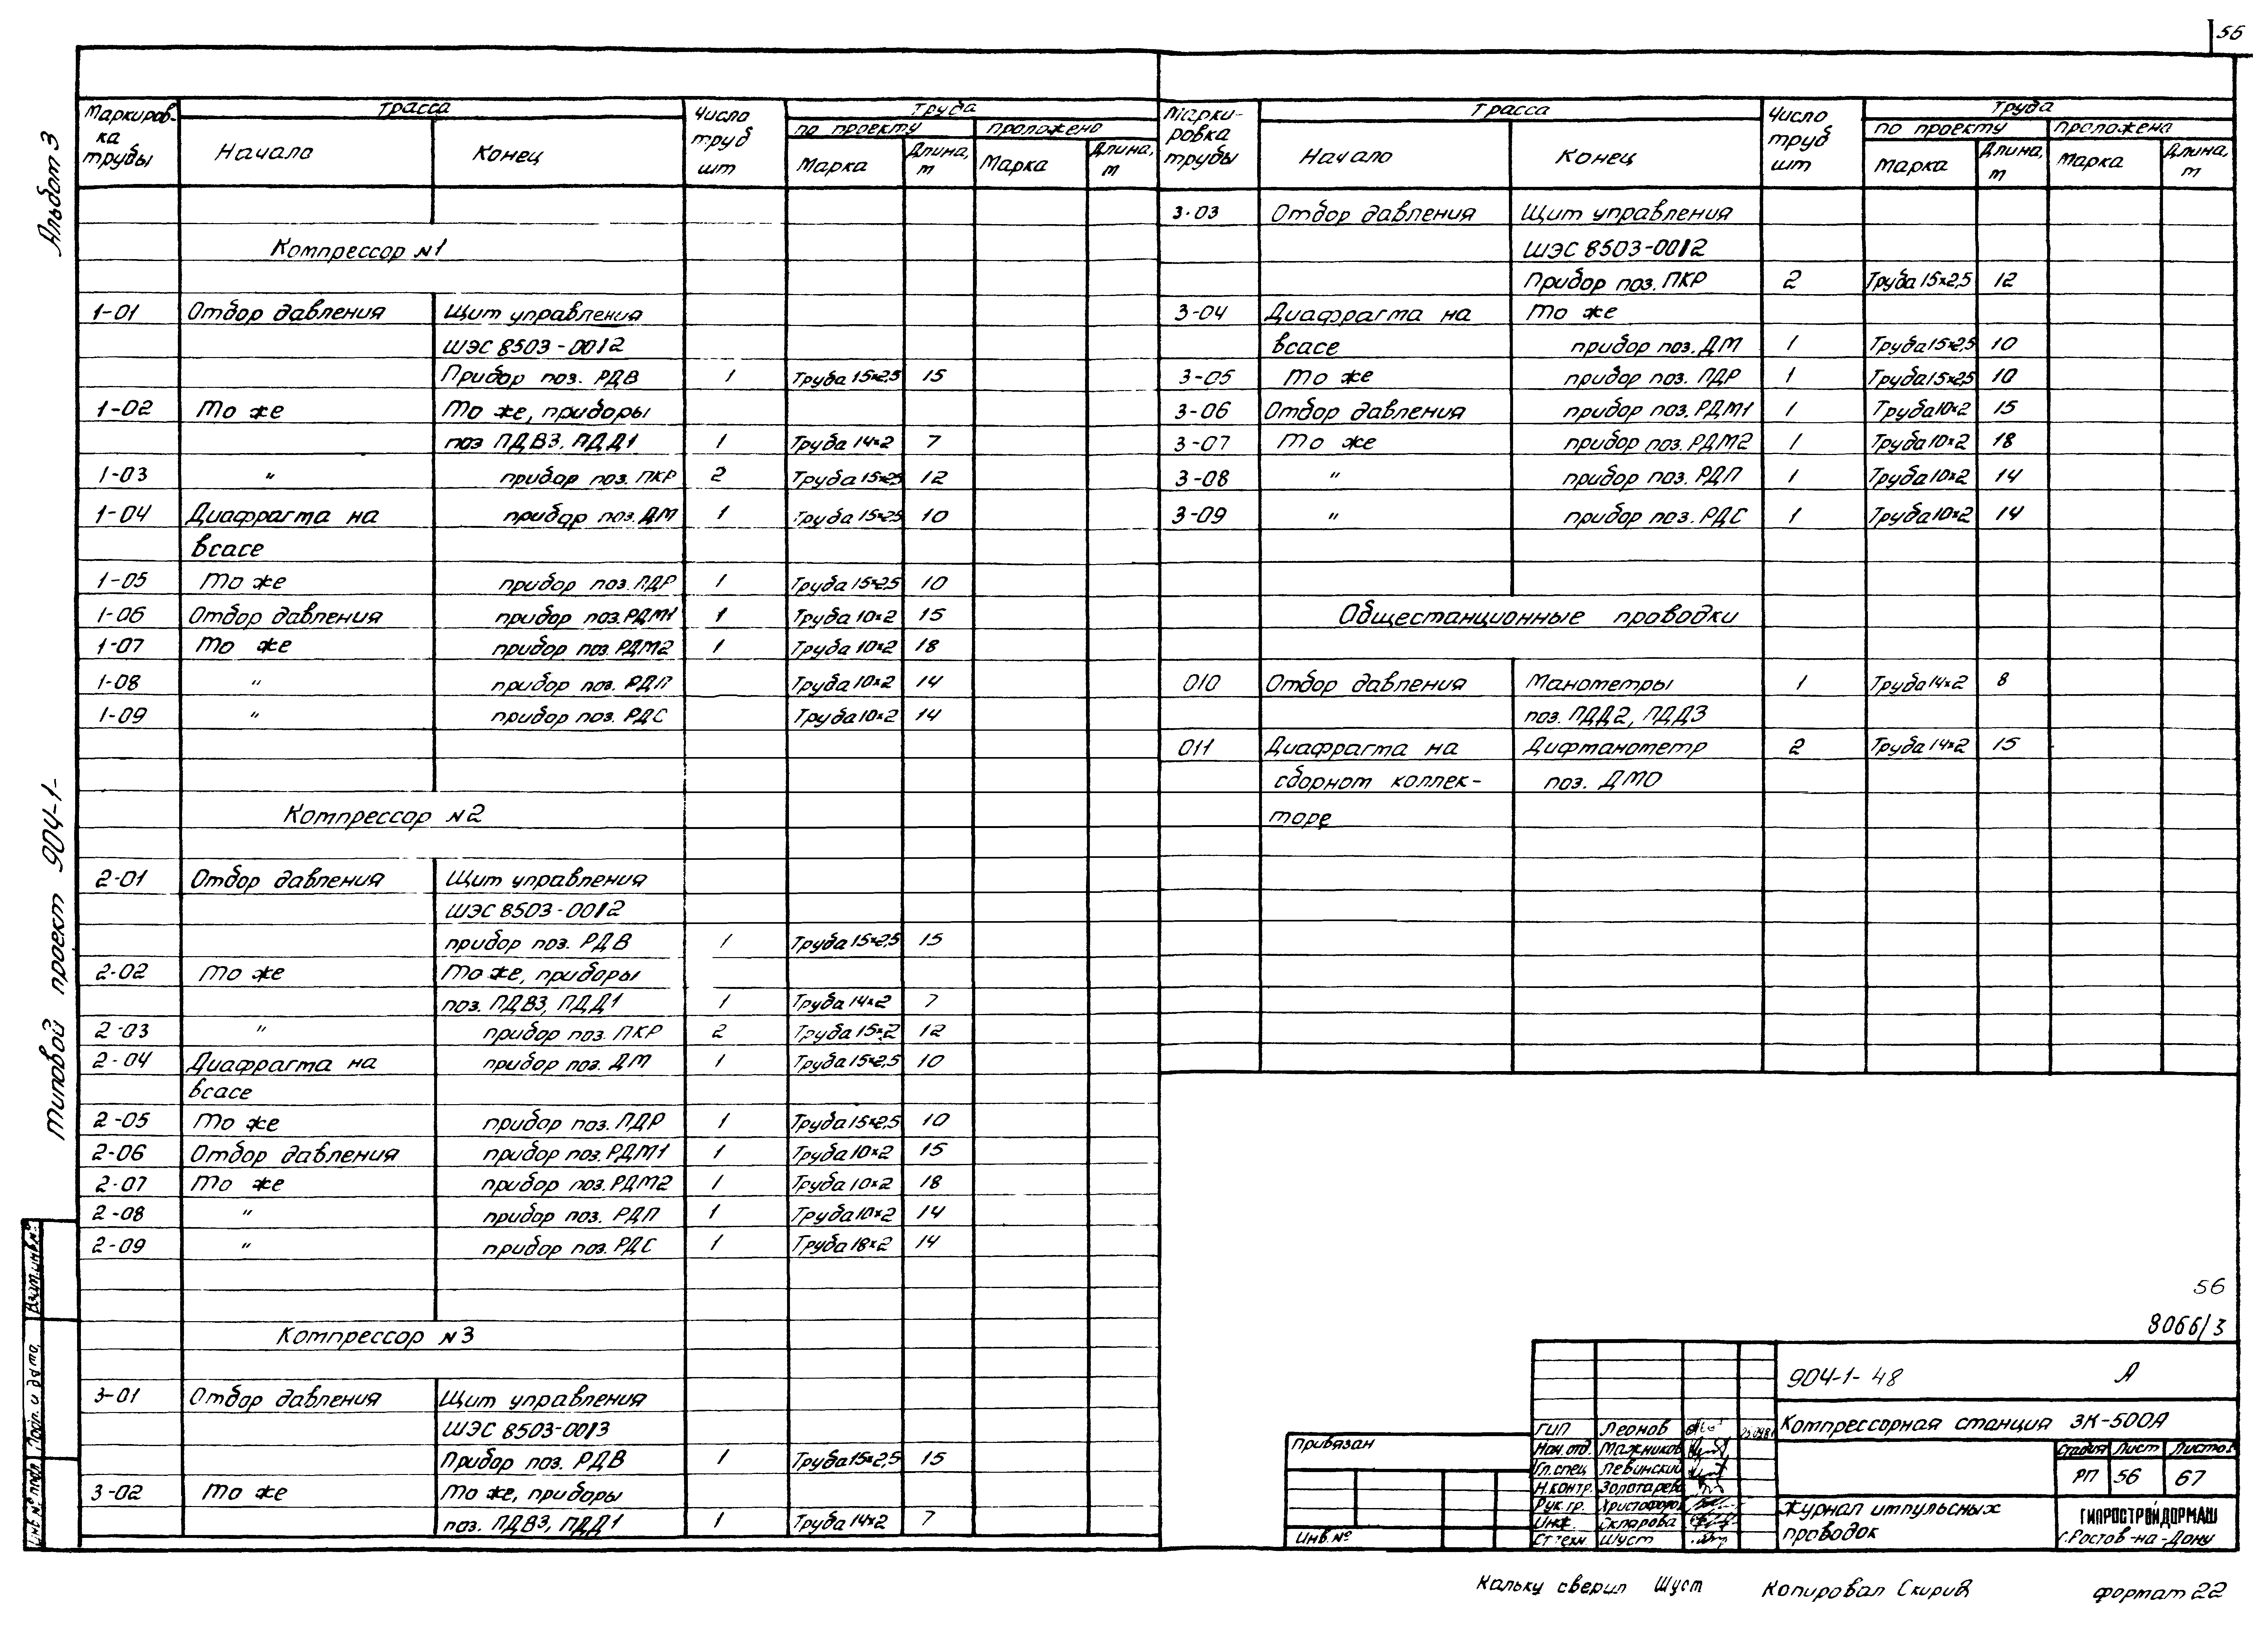 56
Альбом 3
Типовой проект 904-1-
Маркиров- ка трубы | Трасса | Число труб шт | Труба
по проекту | проложено
Начало | Конец | Марка | Длина, м | Марка | Длина, м
Компрессор №1
1-01 Отбор давления Щит управления
ШЭС 8503-0012
Прибор поз. РДВ 1 Труба 15×2,5 15
1-02 То же То же, приборы
поз ПДВ3, ПДД1 1 Труба 14×2 7
1-03 " прибор поз. ПКР 2 Труба 15×2,5 12
1-04 Диафрагма на прибор поз. ДМ 1 Труба 15×2,5 10
всасе
1-05 То же прибор поз. ПДР 1 Труба 15×2,5 10
1-06 Отбор давления прибор поз. РДМ1 1 Труба 10×2 15
1-07 То же прибор поз. РДМ2 1 Труба 10×2 18
1-08 " прибор поз. РДП Труба 10×2 14
1-09 " прибор поз. РДС Труба 10×2 14
Компрессор №2
2-01 Отбор давления Щит управления
ШЭС 8503-0012
прибор поз. РДВ 1 Труба 15×2,5 15
2-02 То же То же, приборы
поз. ПДВ3, ПДД1 1 Труба 14×2 7
2-03 " прибор поз. ПКР 2 Труба 15×2 12
2-04 Диафрагма на прибор поз. ДМ 1 Труба 15×2,5 10
всасе
2-05 То же прибор поз. ПДР 1 Труба 15×2,5 10
2-06 Отбор давления прибор поз. РДМ1 1 Труба 10×2 15
2-07 То же прибор поз. РДМ2 1 Труба 10×2 18
2-08 " прибор поз. РДП 1 Труба 10×2 14
2-09 " прибор поз. РДС 1 Труба 18×2 14
Компрессор №3
3-01 Отбор давления Щит управления
ШЭС 8503-0013
Прибор поз. РДВ 1 Труба 15×2,5 15
3-02 То же То же, приборы
поз. ПДВ3, ПДД1 1 Труба 14×2 7
Марки- ровка трубы | Трасса | Число труб шт | Труба
по проекту | проложена
Начало | Конец | Марка | Длина, м | Марка | Длина, м
3-03 Отбор давления Щит управления
ШЭС 8503-0012
Прибор поз. ПКР 2 Труба 15×2,5 12
3-04 Диафрагма на То же
всасе прибор поз. ДМ 1 Труба 15×2,5 10
3-05 То же прибор поз. ПДР 1 Труба 15×2,5 10
3-06 Отбор давления прибор поз. РДМ1 1 Труба 10×2 15
3-07 То же прибор поз. РДМ2 1 Труба 10×2 18
3-08 " прибор поз. РДП 1 Труба 10×2 14
3-09 " прибор поз. РДС 1 Труба 10×2 14
Общестанционные проводки
010 Отбор давления Манометры 1 Труба 14×2 8
поз. ПДД2, ПДД3
011 Диафрагма на Дифманометр 2 Труба 14×2 15
сборном коллек- поз. ДМО
торе
56
8066/3
904-1-48 А
Компрессорная станция 3К-500А
Стадия Лист Листов
РП 56 67
Журнал импульсных
проводок
ГИПРОСТРОЙДОРМАШ
г. Ростов-на-Дону
ГИП Леонов
Нач. отд. Мажников
Гл. спец Левинский
Н.контр. Золотарева
Рук. гр. Христофоров
Инж. Склярова
Ст. техн. Шуст
Привязан
Инв. №
Взам. инв. №
Подп. и дата
Инв № подл.
Кальку сверил Шуст Копировал формат 22